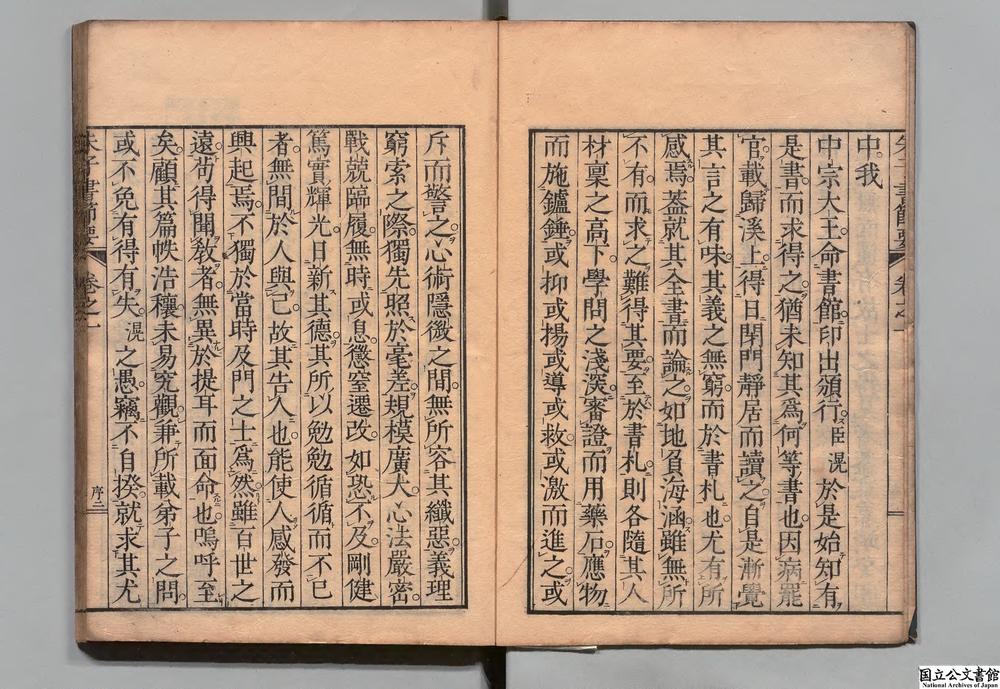 中我
中宗大王命書館印出頒行臣滉於是始知有
是書而求得之猶未知其爲何等書也因病罷
官載歸溪上得日閉門靜居而讀之自是漸覺
其言之有味其義之無窮而於書札也尤有所
感焉蓋就其全書而論之如地負海涵雖無所
不有而求之難得其要至於書札則各隨其人
材稟之高下學問之淺深審證而用藥石應物
而施鑪錘或抑或揚或導或救或激而進之或
斥而警之心術隱微之間無所容其纖惡義理
窮索之際獨先照於毫差規模廣大心法嚴密
戰兢臨履無時或息懲窒遷改如恐不及剛健
篤實輝光日新其德其所以勉勉循循而不已
者無間於人與己故其告人也能使人感發而
興起焉不獨於當時及門之士爲然雖百世之
遠苟得聞敎者無異於提耳而面命也嗚呼至
矣顧其篇帙浩穰未易究觀兼所載弟子之問
或不免有得有失滉之愚竊不自揆就求其尤
朱子書節要 卷之一 序二
国立公文書館
National Archives of Japan